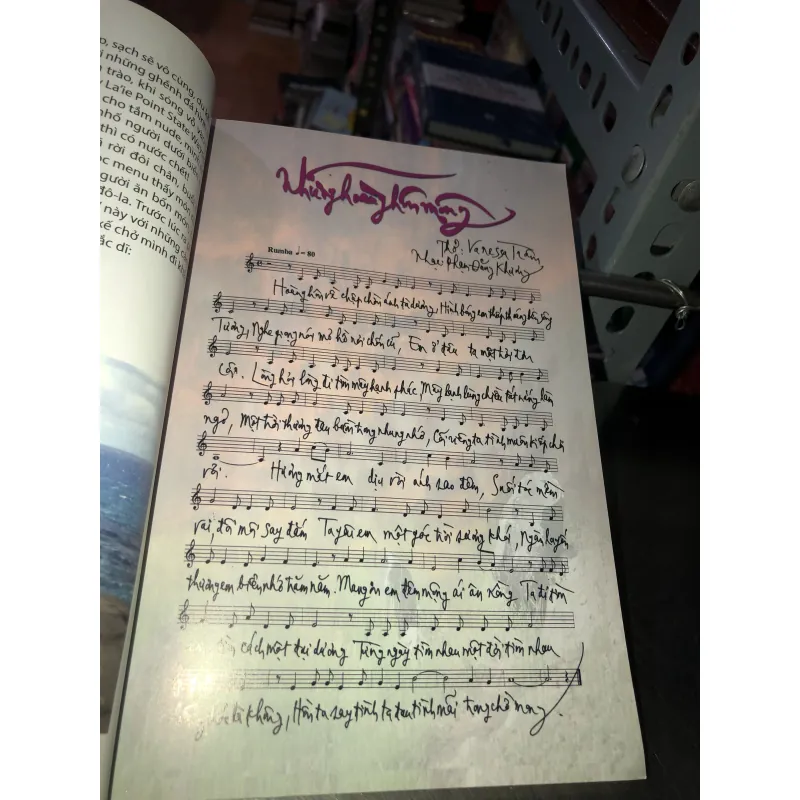 o, sạch sẽ vô cùng, du
i những ghềnh đá
trào, khi sóng vỗ
La'ie Point State
cho tắm nude, min
nhố người dưới
thì có nước
rời đôi chân,
ọc menu thấy món
gười ăn bốn món
đô-la. Trước lúc
này với những
kế chở mình đi
ắc dĩ:
Những hoàng hôn mộng
Thơ: Vanessa Trâm
Nhạc: Phan Đăng Khương
Rumba ♩= 80
Hoàng hôn về chập chờn ánh tà dương, Hình bóng em thấp thoáng bên
Tương, Nghe giọng nói mơ hồ nơi chốn cũ, Em ở đâu ta một
Lòng hỏi lòng đi tìm mây hạnh phúc, Mây lạnh lùng chiều tắt nắng làm
ngơ, Một trời thương đau buồn trong nhung nhớ, Cõi riêng ta tình muôn kiếp
rồi. Hương mắt em dịu vời ánh sao đêm, Suối tóc mềm
vai, đôi môi say đắm Ta yêu em một góc trời sương khói, Ngân
thương em biển nhớ trăm năm. Mang ơn em đêm mộng ái ân nồng Ta đi tìm
cách một đại dương Từng ngày tìm nhau một đời tìm nhau
không, Hồn ta say tình ta đau tình mãi trong chờ mong.